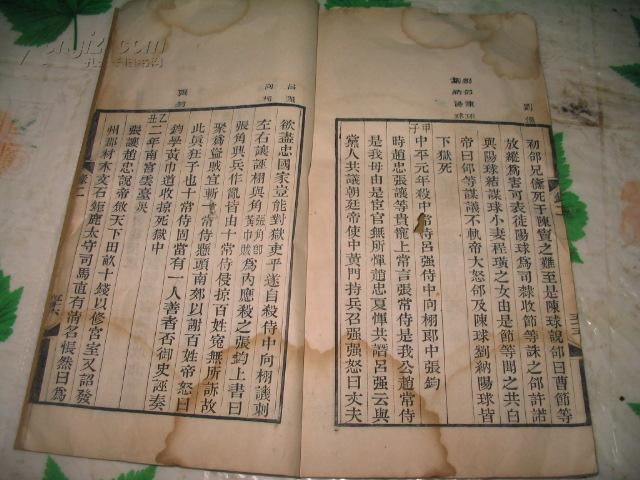 初郃兄儵死于陳竇之難至是陳球說郃曰曹節等
放縱爲害可表徙陽球爲司隸收節等誅之郃許諾
與陽球結謀球小妻程璜之女由是節等聞之共白
帝曰郃等謀議不軌帝大怒郃及陳球劉納陽球皆
下獄死
甲子
中平元年殺中常侍呂强侍中向栩郎中張鈞
時趙忠張讓等貴寵上常言張常侍是我公趙常侍
是我母由是宦官無所憚趙忠夏惲共譖呂强云與
黨人共議朝廷帝使中黃門持兵召强强怒曰丈夫
欲盡忠國家豈能對獄吏乎遂自殺侍中向栩議刺
左右讓誣栩與角張角部黃巾賊爲內應殺之張鈞上書曰
張角興兵作亂皆由十常侍侵掠百姓寃無所訴故
聚爲盜賊宜斬十常侍懸頭南郊以謝百姓帝怒曰
此眞狂子也十常侍固當有一人善者否御史誣奏
鈞學黃巾道收掠死獄中
乙丑
二年南宮雲臺災
張讓趙忠說帝斂天下田畝十錢以修宮室又詔發
州郡材木文石鉅鹿太守司馬直有淸名悵然曰爲